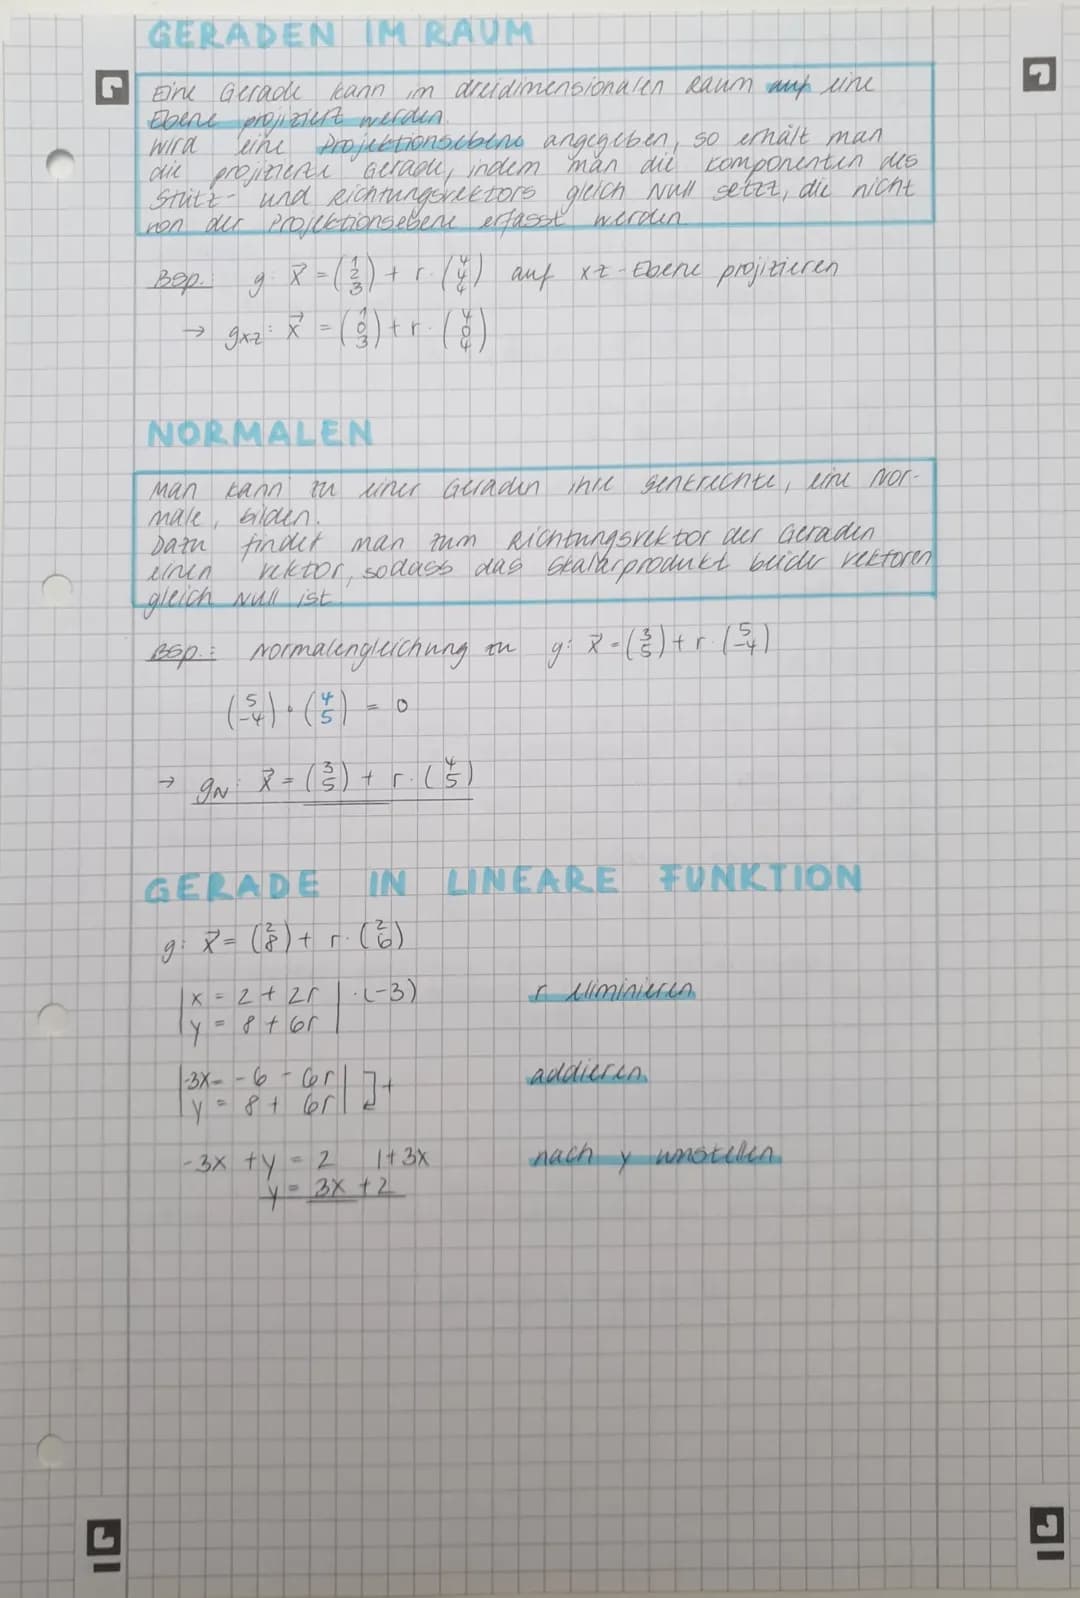 GERADEN IM RAUM
Eine Gerade kann im dreidimensionalen Raum auf eine
Ebene projiziert werden.
Wird eine Projektionsebene angegeben, so erhält man
die projizierte Gerade, indem man die Komponenten des
Stütz- und Richtungsvektors gleich Null setzt, die nicht
von der Projektionsebene erfasst werden
Bsp.: g: x⃗ = (1 2 3) + r · (4 4 4) auf xz-Ebene projizieren
→ gxz: x⃗ = (1 0 3) + r · (4 0 4)
NORMALEN
Man kann zu einer Geraden ihre Senkrechte, eine Nor-
male, bilden.
Dazu findet man zum Richtungsvektor der Geraden
einen Vektor, sodass das Skalarprodukt beider Vektoren
gleich Null ist.
Bsp.: Normalengleichung zu g: x⃗ = (3 5) + r · (5 -4)
(5 -4) · (4 5) = 0
→ gN: x⃗ = (3 5) + r · (4 5)
GERADE IN LINEARE FUNKTION
g: x⃗ = (2 8) + r · (2 6)
|x = 2 + 2r | ·(-3) r eliminieren
|y = 8 + 6r |
|-3x = -6 - 6r | ]+ addieren
|y = 8 + 6r |
-3x + y = 2 |+3x nach y umstellen
y = 3x + 2